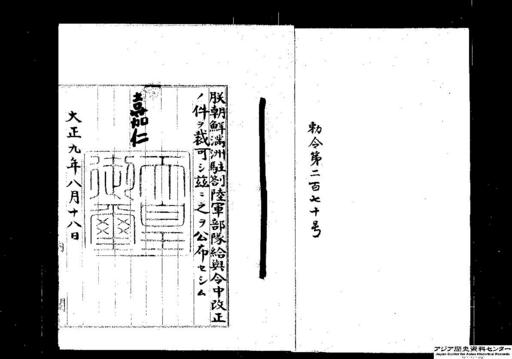 勅令第二百七十号
朕朝鮮満洲駐劄陸軍部隊給与令中改正
ノ件ヲ裁可シ茲ニ之ヲ公布セシム
嘉仁
天皇
御璽
大正九年八月十八日
内閣
アジア歴史資料センター
Japan Center for Asian Historical Records